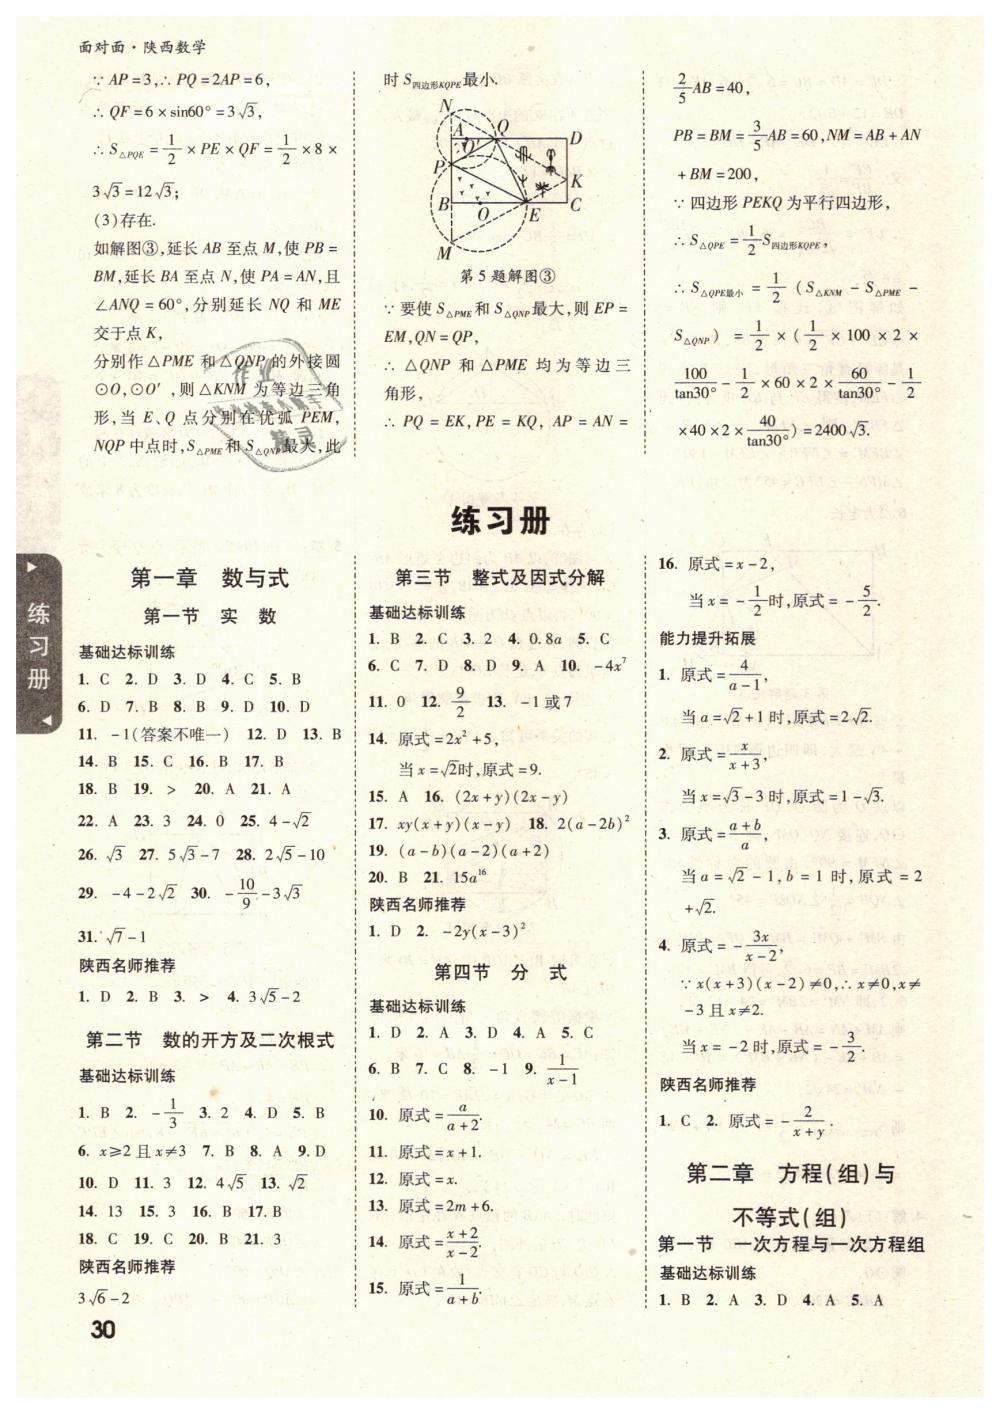 面对面·陕西数学
∵ AP=3,∴ PQ=2AP=6,
∴ QF=6×sin60°=3√3,
∴ S△PQE=1/2×PE×QF=1/2×8×
3√3=12√3;
(3)存在.
如解图③,延长 AB 至点 M,使 PB=
BM,延长 BA 至点 N,使 PA=AN,且
∠ANQ=60°,分别延长 NQ 和 ME
交于点 K,
分别作△PME 和△QNP 的外接圆
⊙O,⊙O′,则△KNM 为等边三角
形,当 E、Q 点分别在优弧 PEM,
NQP 中点时,S△PME和 S△QNP最大,此
时 S四边形KQPE最小.
N
A
Q
D
O′
P
K
B
O
E
C
M
第 5 题解图③
∵ 要使 S△PME和 S△QNP最大,则 EP=
EM,QN=QP,
∴ △QNP 和△PME 均为等边三
角形,
∴ PQ=EK,PE=KQ, AP=AN=
2/5AB=40,
PB=BM=3/5AB=60,NM=AB+AN
+BM=200,
∵ 四边形 PEKQ 为平行四边形,
∴ S△QPE=1/2S四边形KQPE,
∴ S△QPE最小=1/2(S△KNM-S△PME-
S△QNP)=1/2×(1/2×100×2×
100/tan30°-1/2×60×2×60/tan30°-1/2
×40×2×40/tan30°)=2400√3.
作业
精灵
练习册
练习册
第一章 数与式
第一节 实 数
基础达标训练
1. C 2. D 3. D 4. C 5. B
6. D 7. B 8. B 9. D 10. D
11. -1(答案不唯一) 12. D 13. B
14. B 15. C 16. B 17. B
18. B 19. > 20. A 21. A
22. A 23. 3 24. 0 25. 4-√2
26. √3 27. 5√3-7 28. 2√5-10
29. -4-2√2 30. -10/9-3√3
31. √7-1
陕西名师推荐
1. D 2. B 3. > 4. 3√5-2
第二节 数的开方及二次根式
基础达标训练
1. B 2. -1/3 3. 2 4. D 5. B
6. x≥2 且 x≠3 7. B 8. A 9. D
10. D 11. 3 12. 4√5 13. √2
14. 13 15. 3 16. B 17. B
18. C 19. C 20. B 21. 3
陕西名师推荐
3√6-2
第三节 整式及因式分解
基础达标训练
1. B 2. C 3. 2 4. 0.8a 5. C
6. C 7. D 8. D 9. A 10. -4x⁷
11. 0 12. 9/2 13. -1 或 7
14. 原式=2x²+5,
当 x=√2时,原式=9.
15. A 16. (2x+y)(2x-y)
17. xy(x+y)(x-y) 18. 2(a-2b)²
19. (a-b)(a-2)(a+2)
20. B 21. 15a¹⁶
陕西名师推荐
1. D 2. -2y(x-3)²
第四节 分 式
基础达标训练
1. D 2. A 3. D 4. A 5. C
6. B 7. C 8. -1 9. 1/(x-1)
10. 原式=a/(a+2).
11. 原式=x+1.
12. 原式=x.
13. 原式=2m+6.
14. 原式=(x+2)/(x-2).
15. 原式=1/(a+b).
16. 原式=x-2,
当 x=-1/2时,原式=-5/2.
能力提升拓展
1. 原式=4/(a-1),
当 a=√2+1 时,原式=2√2.
2. 原式=x/(x+3),
当 x=√3-3 时,原式=1-√3.
3. 原式=(a+b)/a,
当 a=√2-1,b=1 时,原式=2
+√2.
4. 原式=-3x/(x-2),
∵ x(x+3)(x-2)≠0,∴ x≠0,x≠
-3 且 x≠2.
当 x=-2 时,原式=-3/2.
陕西名师推荐
1. C 2. 原式=-2/(x+y).
第二章 方程(组)与
不等式(组)
第一节 一次方程与一次方程组
基础达标训练
1. B 2. A 3. D 4. A 5. A
30